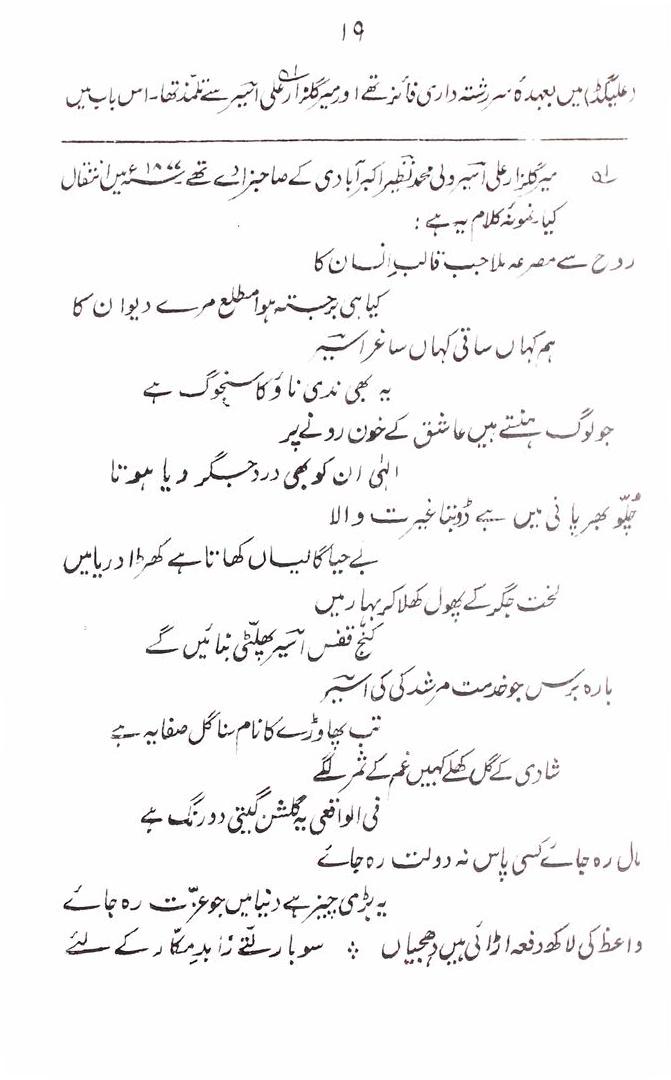 ۱۹
(علیگڑھ) میں بعہدۂ سررشتہ داری فائز تھے اور میر گلزار علی اسیر سے تلمذ تھا۔ اس باب میں
ا؎ میر گلزار علی اسیر ولی محمد نظیر اکبر آبادی کے صاحبزادے تھے ۱۸۷۷ء میں انتقال
کیا۔ نمونۂ کلام یہ ہے :
روح سے مصرعہ ملا جب قالبِ انسان کا
کیا ہی برجستہ ہوا مطلع مرے دیوان کا
ہم کہاں ساقی کہاں ساغر اسیر
یہ بھی ندی ناؤ کا سنجوگ ہے
جو لوگ ہنستے ہیں عاشق کے خون رونے پر
الٰہی ان کو بھی دردِ جگر دیا ہوتا
چلّو بھر پانی میں ہے ڈوبتا غیرت والا
بے حیا گالیاں کھاتا ہے کھڑا دریا میں
لختِ جگر کے پھول کھلا کر بہار میں
کنجِ قفس اسیر پھلتی بنائیں گے
بارہ برس جو خدمت مرشد کی کی اسیر
تب پھاوڑے کا نام سنا گل صفا یہ ہے
شادی کے گل کھلے کہیں غم کے ثمر لگے
فی الواقعی یہ گلشن گیتی دو رنگ ہے
مال رہ جائے کسی پاس نہ دولت رہ جائے
یہ بڑی چیز ہے دنیا میں جو عزّت رہ جائے
واعظ کی لاکھ دفعہ اڑائی ہیں دھجیاں ؞ سو بار لتّے زاہدِ مکّار کے لئے